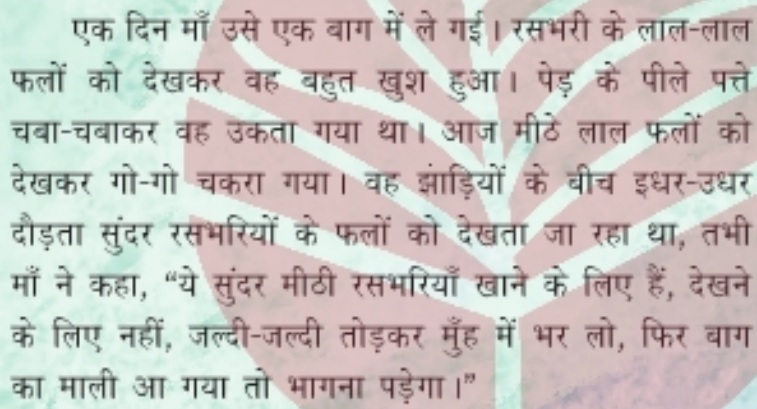 एक दिन माँ उसे एक बाग में ले गई। रसभरी के लाल-लाल
फलों को देखकर वह बहुत खुश हुआ। पेड़ के पीले पत्ते
चबा-चबाकर वह उकता गया था। आज मीठे लाल फलों को
देखकर गो-गो चकरा गया। वह झाड़ियों के बीच इधर-उधर
दौड़ता सुंदर रसभरियों के फलों को देखता जा रहा था, तभी
माँ ने कहा, “ये सुंदर मीठी रसभरियाँ खाने के लिए हैं, देखने
के लिए नहीं, जल्दी-जल्दी तोड़कर मुँह में भर लो, फिर बाग
का माली आ गया तो भागना पड़ेगा।”